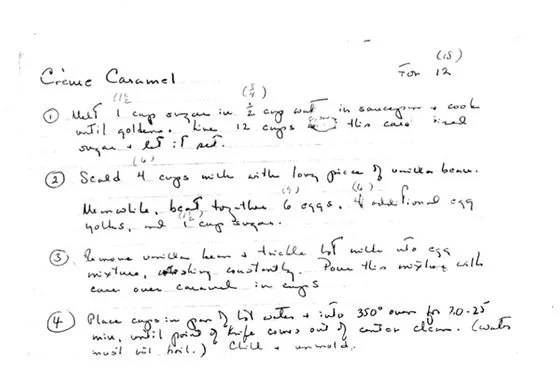 (18)
Crème Caramel For 12
(1½) (¾)
① Melt 1 cup sugar in ½ cup water in saucepan + cook
until golden. Line 12 cups with this caramelized
sugar + let it set.
(6)
② Scald 4 cups milk with long piece of vanilla bean.
(9) (6)
Meanwhile, beat together 6 eggs, 4 additional egg
(1½)
yolks, and 1 cup sugar.
③ Remove vanilla bean + trickle hot milk into egg
mixture, whisking constantly. Pour this mixture with
care over caramel in cups
④ Place cups in pan of hot water + into 350° oven for 20-25
min, until point of knife comes out of center clean. (Water
must not boil.) Chill + unmold.